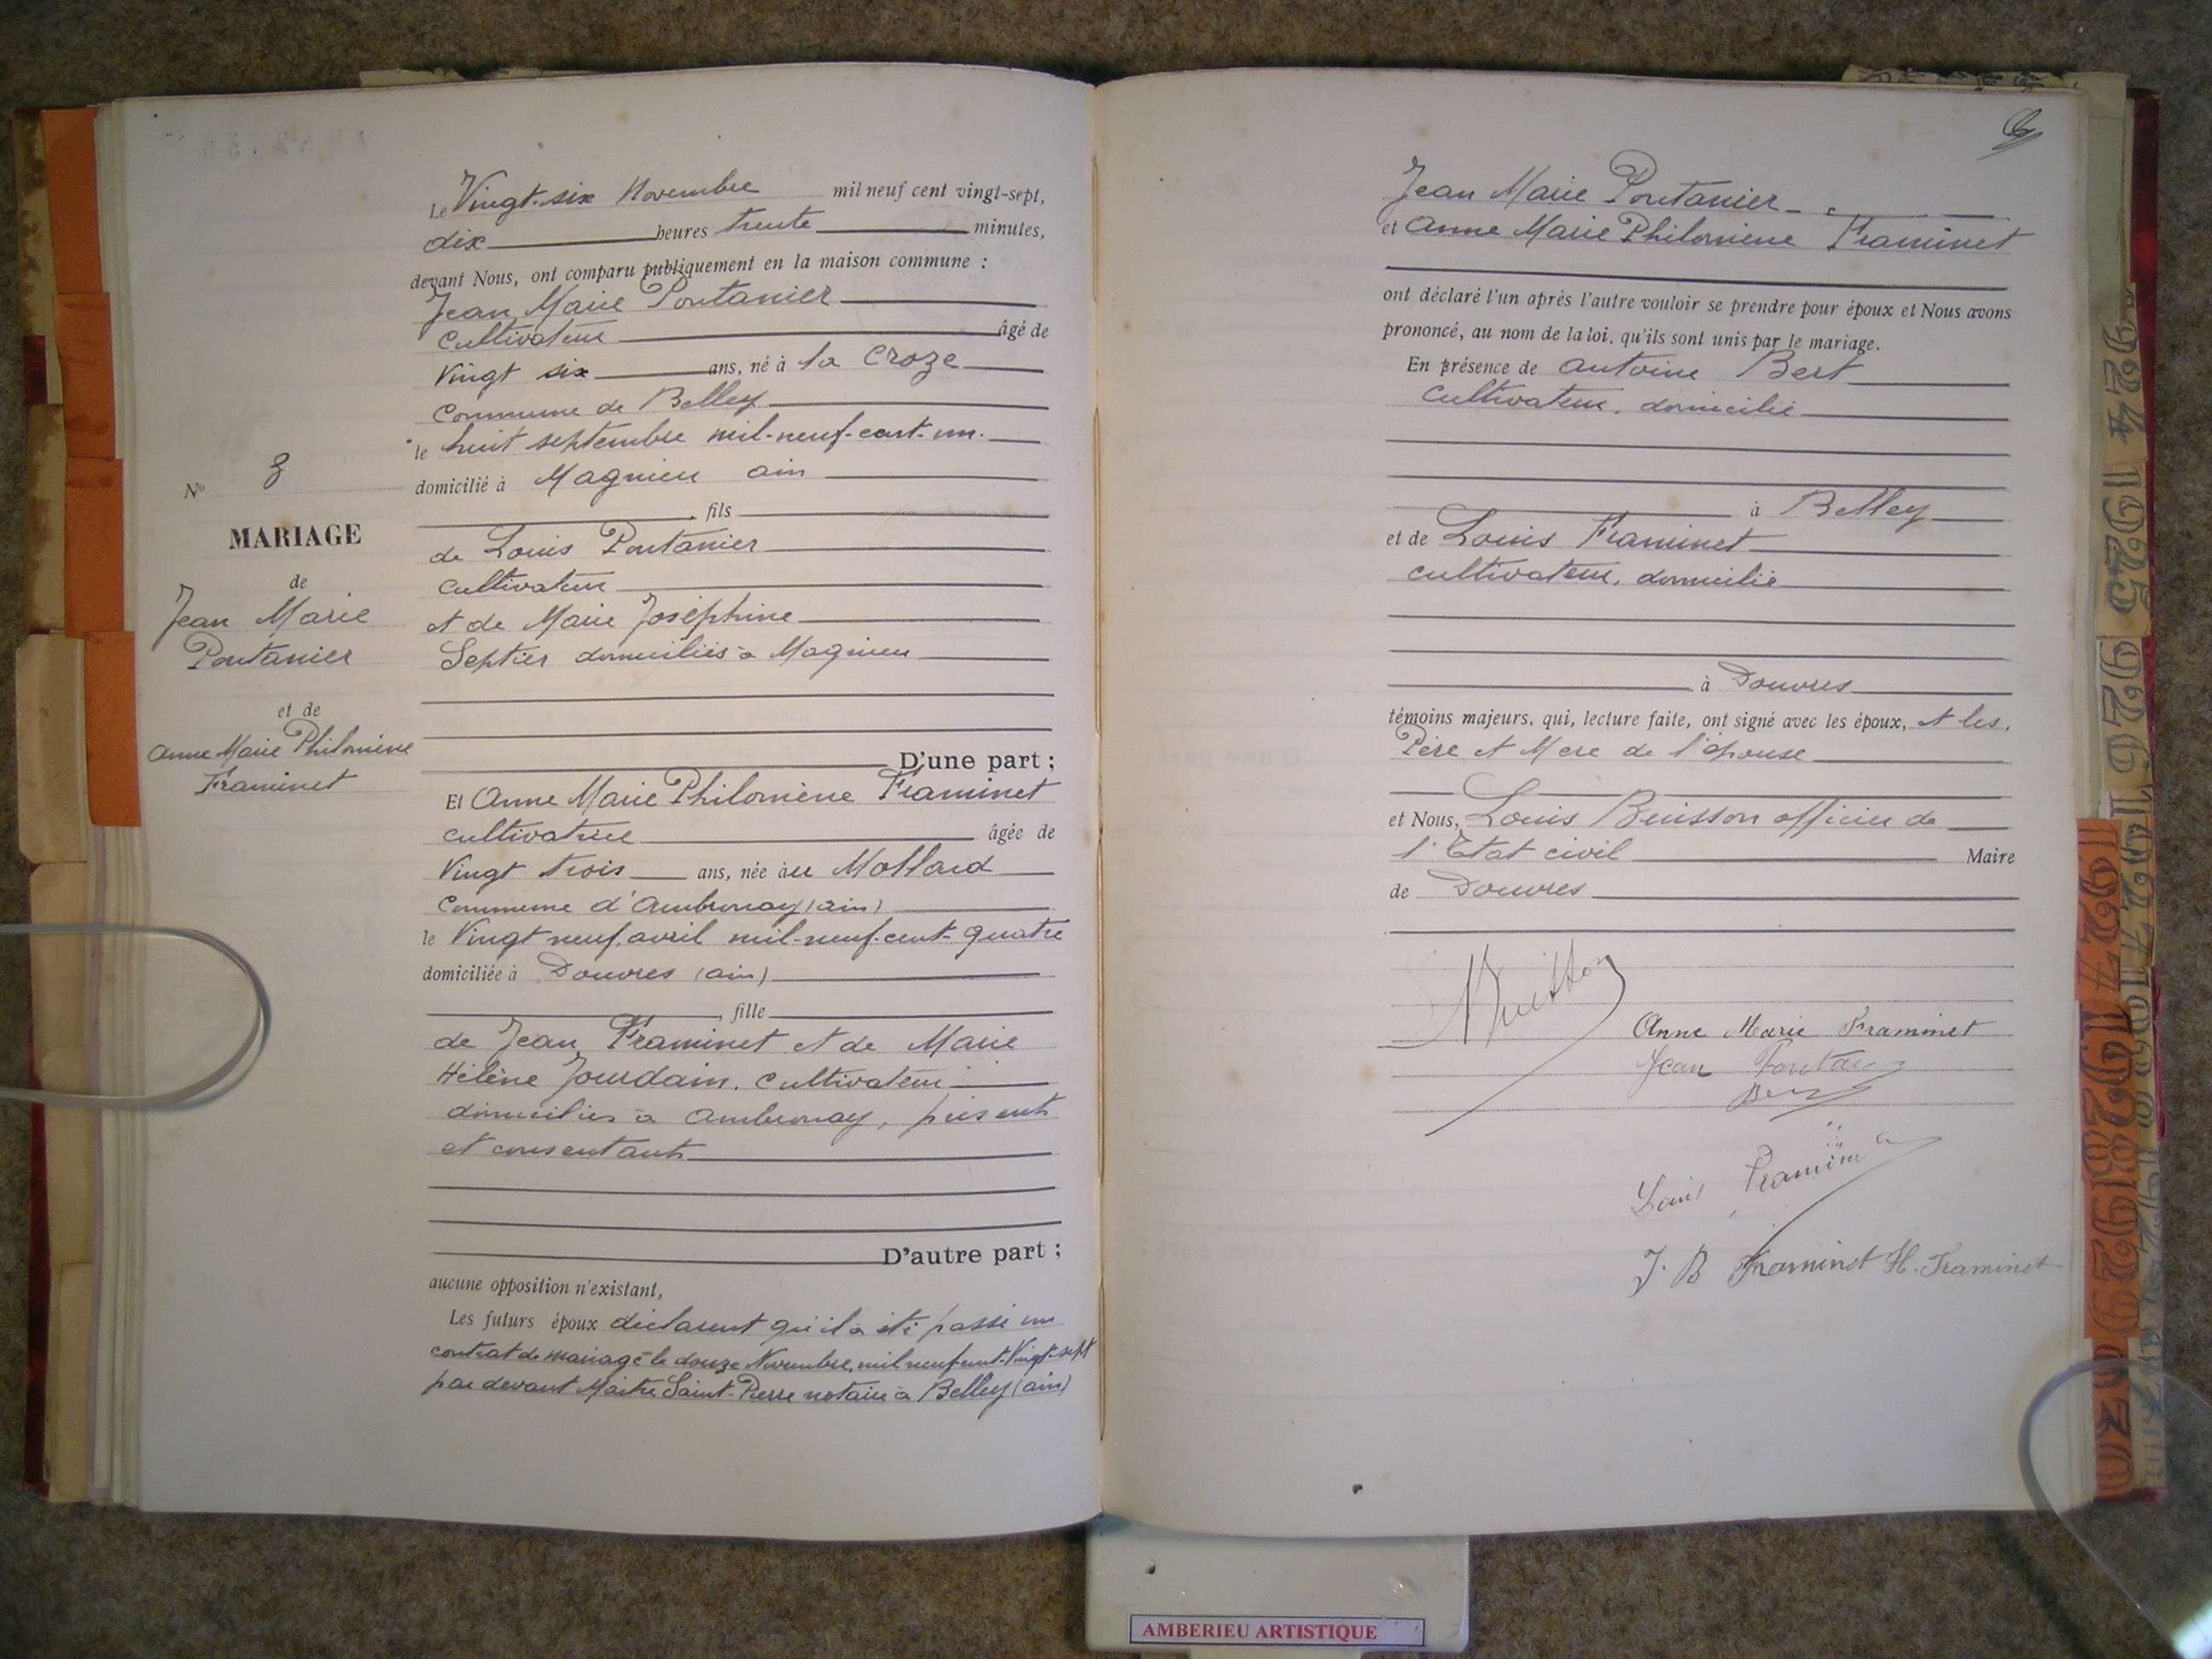 Le Vingt-six Novembre mil neuf cent vingt-sept,
dix heures trente minutes,
devant Nous, ont comparu publiquement en la maison commune :
Jean Marie Pontanier
Cultivateur âgé de
Vingt six ans, né à la Croze
Commune de Belley
le huit septembre mil-neuf-cent-un.
domicilié à Magnieu ain
fils
de Louis Pontanier
cultivateur
et de Marie Joséphine
Septier domiciliés à Magnieu
D'une part ;
Et Anne Marie Philomène Framinet
cultivatrice âgée de
Vingt trois ans, née àu Mollard
Commune d'Ambronay (ain)
le Vingt neuf avril mil-neuf-cent-quatre
domiciliée à Douvres (ain)
, fille
de Jean Framinet et de Marie
Hélène Jourdain. Cultivateur
domiciliés à Ambronay, présents
et consentants
D'autre part ;
aucune opposition n'existant,
Les futurs époux déclarent qu'il a été passé un
contrat de mariage le douze Novembre, mil neuf cent-Vingt-sept
par devant Maître Saint-Pierre notaire à Belley (ain)
N° 3
MARIAGE
de
Jean Marie
Pontanier
et de
Anne Marie Philomène
Framinet
Jean Marie Pontanier
et Anne Marie Philomène Framinet
ont déclaré l'un après l'autre vouloir se prendre pour époux et Nous avons
prononcé, au nom de la loi, qu'ils sont unis par le mariage.
En présence de Antoine Bert
Cultivateur, domicilié
à Belley
et de Louis Framinet
cultivateur, domicilié
à Douvres
témoins majeurs, qui, lecture faite, ont signé avec les époux, et les,
Père et Mère de l'épouse
et Nous, Louis Buisson officier de
l'Etat civil Maire
de Douvres
Anne Marie Framinet
Jean
Louis
J. B Framinet H. Framinet
1924
1925
1926
1927
1928
1929
AMBERIEU ARTISTIQUE